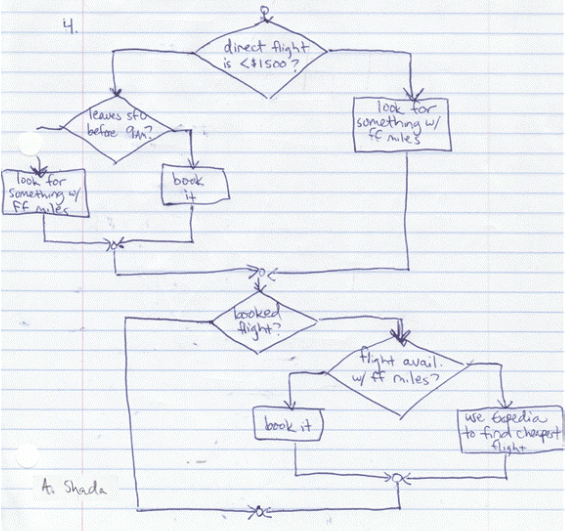 4.
direct flight
is <$1500?
leaves SFO
before 9AM?
look for
something w/
ff miles
look for
something w/
ff miles
book
it
booked
flight?
flight avail.
w/ ff miles?
book it
use Expedia
to find cheapest
flight
A. Shada